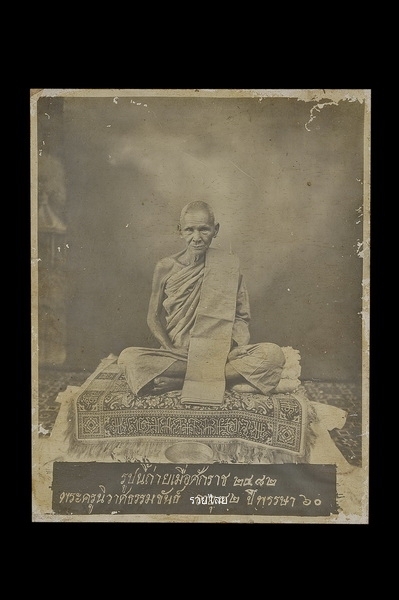 รูปนี้ถ่ายเมื่อศักราช ๒๔๘๒
พระครูนิวาศธรรมขันธ์ ๒ ปี พรรษา ๖๐
รวยเลย